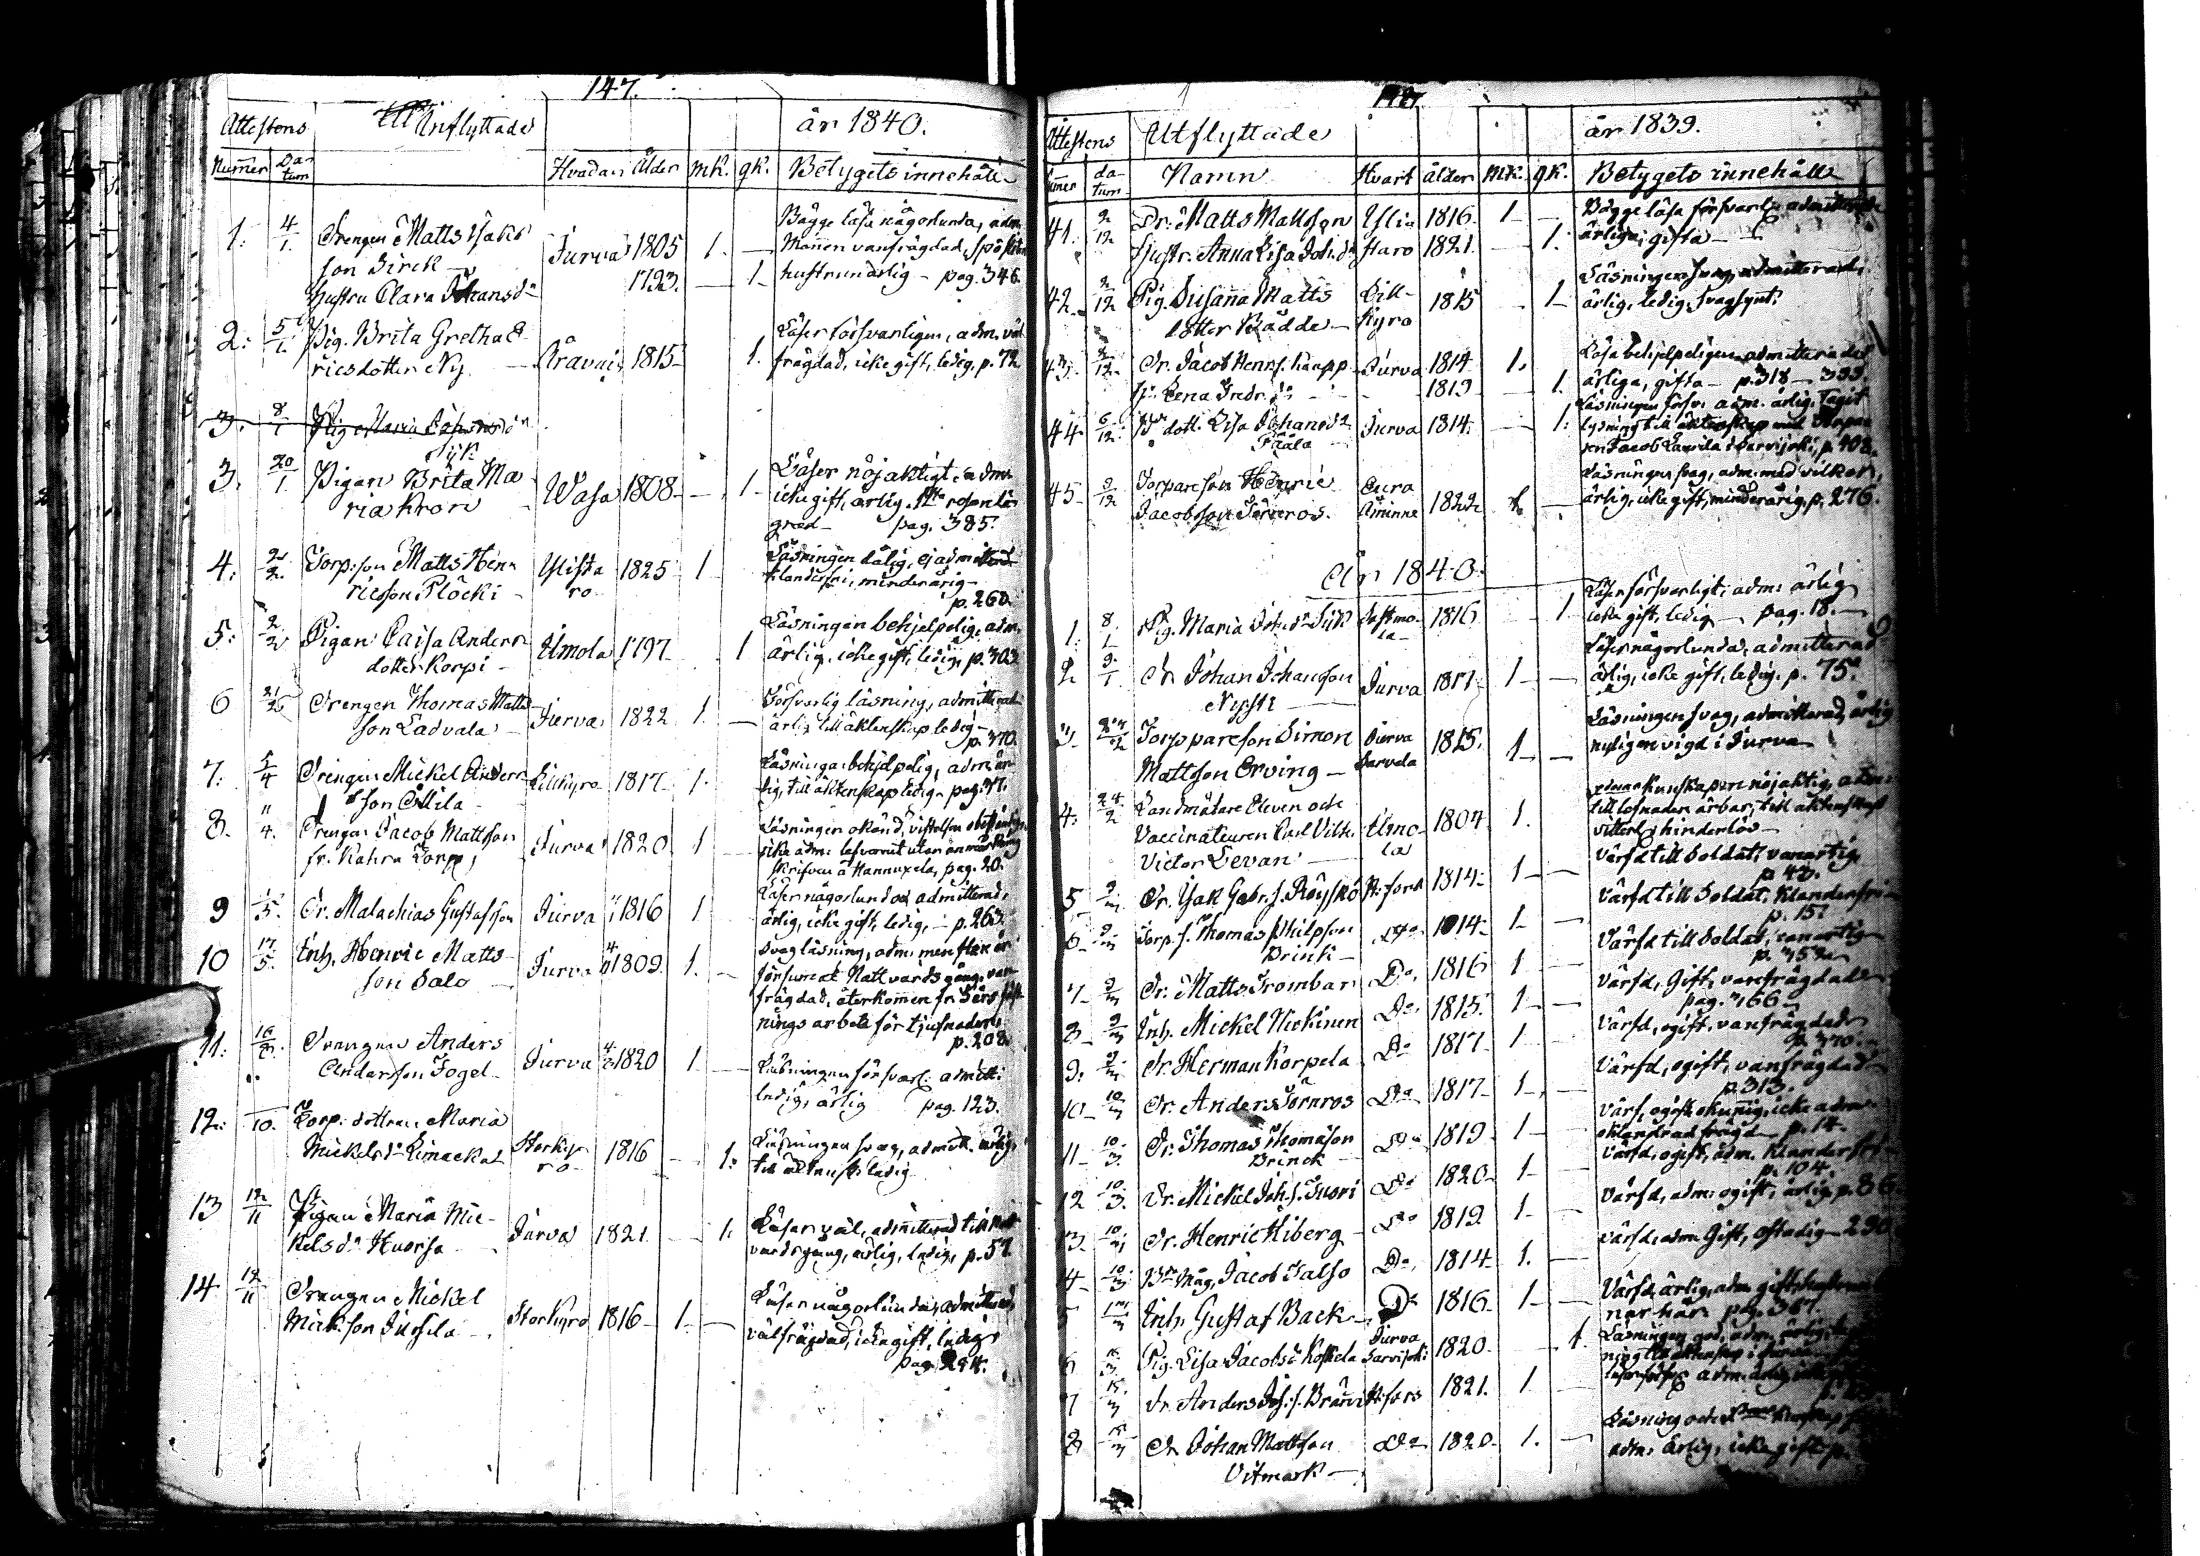 147.
Attestens
Inflyttade
år 1840.
Numer
Datum
Hvadan
Ålder
mk.
qk.
Betygets innehåll
1. 4/1. Drengen Matts Isaks
son Birck
Jurva 1805 1. —
Bägge läsa någorlunda, adm.
Mannen vanfrägdad,
hustru Clara Johansd:r
1793. — 1.
hustrun ärlig – pag. 346.
2. 5/1. Pig. Brita Gretha E-
ricsdotter Nÿ
Oravais 1815 1.
Läser försvarligen, adm. väl
frägdad, icke gift, ledig, p. 72
3. 8/1 Pig Maria Johansd:r
Sÿk
3. 20/1. Pigan Brita Ma
ria Kron
Wasa 1808 — 1
Läser nöjaktigt, adm.
icke gift, ärlig,
pag. 385.
4. 2/2. Torp:son Matts Hen
ricsson Plöcki
Ylista
ro
1825 1
Läsningen dålig, ej admitterad
klanderfri, minderårig
p. 260.
5. 2/2 Pigan Caisa Anders
dotter Korpi
Ilmola 1797 1
Läsningen behjelpelig, adm.
ärlig, icke gift, ledig, p. 303
6 Drengen Thomas Matts
son Ladvala
Jurva 1822 1. —
Försvarlig läsning, admitterad
ärlig till äktenskap ledig
p. 370.
7. 5/4 Drengen Mickel Anders
son Ollila
Lillkyro 1817 1.
Läsningen behjelpelig, adm. är-
lig, till äktenskap ledig pag. 77.
8. 11/4. Drengen Jacob Mattsson
fr. Kahra Torp
Jurva 1820 1
Läsningen okänd,
icke adm.
skrifven å Hannuxela, pag. 20.
9 15/5. Dr. Malachias Gustafsson
Jurva 1816 1
Läser någorlunda admitterad,
ärlig, icke gift, ledig, – p. 263.
10 17/5. Inh. Henric Matts
son Salo
Jurva 1809. 1.
Svag läsning, adm. men
försumat Nattvardsgång, van
frägdad, återkommen fr.
nings arbete för tjufnader
p. 208
11. Drengen Anders
Andersson Fogel
Jurva 1820 1 —
Läsningen försvarl. admitt.
ledig, ärlig pag. 123.
12. /10. Torp. dottren Maria
Mickelsd:r Rimacka
Storkÿ
ro
1816 — 1.
Läsningen svag, admitt. ärlig,
till äktensk. ledig
13 12/11 Pigan Maria Mic-
kelsd:r Huorsa
Jurva 1821. — 1.
Läser väl, admitterad till natt
vardsgång, ärlig, ledig, p. 57
14 12/11 Drengen Mickel
Mickelson Jussila
Storkyro 1816 1 —
Läser någorlunda, admitterad,
välfrägdad, icke gift, ledig
pag. 284.
148
Attestens
Utflyttade
år 1839.
Numer
datum
Namn
Hvart
ålder
mk.
qk.
Betygets innehåll
41. 9/12 Dr. Matts Mattsson
Hustr. Anna Lisa Joh.d:r
Ylis
taro
1816. 1 —
1821. — 1.
Bägge läsa försvarl. admitterade
ärliga, gifta
42. 9/12 Pig. Susanna Matts
dotter Rädde
Lill-
kyro
1815 — 1
Läsningen svag, admitterad,
ärlig, ledig, svagsynt.
43. 9/12 Dr. Jacob Henr.s. Knapp
Jurva 1814 1.
h. Lena Indr.d:r
1813 — 1.
Läsa behjelpeligen admitterade
ärliga, gifta – p. 318 – 333
44. 6/12. dott. Lisa Johansd:r
Pääla
Jurva 1814. — 1.
Läsningen försv. adm. ärlig, tagit
lysning till äktenskap med Torpa-
ren Jacob Laurila i Sarvijoki, p. 402.
45. 9/12 Torpareson Henric
Jacobsson Törnros.
Eura
Åminne
1822 1 —
Läsningen svag, adm. med vilkor,
ärlig, icke gift, minderårig, p. 276.
År 1840.
1. 8/1 Pig. Maria Joh.d:r Sÿk
Östmo-
la
1816 1
Läser försvarligt, adm. ärlig
icke gift, ledig – pag. 18.
2 9/1 Dr. Johan Johansson
Nysti
Jurva 1817 1 —
Läser någorlunda, admitterad
ärlig, icke gift, ledig. p. 75.
3. Torppareson Simon
Mattsson Orving
Jurva
Sarvela
1815. 1 —
Läsningen svag, admitterad, ärlig
nyligen vigd i Jurva
4. 24/2 Landmätare Eleven och
Vaccinateuren Carl Vilh.
Victor Levan
Ilmo-
la
1804 1.
kunskapen nöjaktig, adm.
till lefnaden ärbar, till äktenskap
vitterl. hinderlös
5 9/3 Dr. Isak Gabr.s. Röyskö
H:fors 1814 1 —
Värfd till Soldat, vanartig
p. 42.
6 9/3 Torp.s. Thomas Philpson
Brink
D:o 1814 1 —
Värfd till Soldat, klanderfri
p. 15.
7 9/3 Dr. Matts Trombar
D:o 1816 1 —
Värfd till Soldat, vanartig
8 9/3 Inh. Mickel Hickinen
D:o 1815. 1 —
Värfd, Gift, vanfrägdad
pag. 166
9. 9/3 Dr. Herman Korpela
D:o 1817 1
Värfd, ogift, vanfrägdad
p. 370.
10 10/3 Dr. Anders Törnros
D:o 1817 1 —
Värfd, ogift, vanfrägdad
p. 313.
11 10/3. Dr. Thomas Thomasson
Brinck
D:o 1819 1 —
Värf, ogift, okunnig, icke adm.
oklandrad frägd p. 14.
12 10/3. Dr. Mickel Joh.s. Tuori
D:o 1820 1 —
Värfd, ogift, adm. klanderfri
p. 104.
13. 10/3 Dr. Henric Hiberg
D:o 1819 1 —
Värfd, adm. ogift, ärlig, p. 86
14 10/3 Måg, Jacob Talso
D:o 1814 1. —
Värfd, adm. Gift, ostadig 290
5 Inh. Gustaf Back
D:o 1816 1 —
Värfd, ärlig, adm. gift,
nar här pag. 387.
6 15/3 Pig. Lisa Jacobsd:r Koskela
Jurva
Sarvijoki
1820. 1.
Läsningen god, adm. ärlig,
ning till äktenskap i Jurva
7 15/3 Dr. Anders Joh.s. Brännä
H:fors 1821. 1 —
adm. ärlig
8 15/3 Dr. Johan Mattsson
Vitmark
D:o 1820 1. —
Läsning och
adm. ärlig, icke gift p.